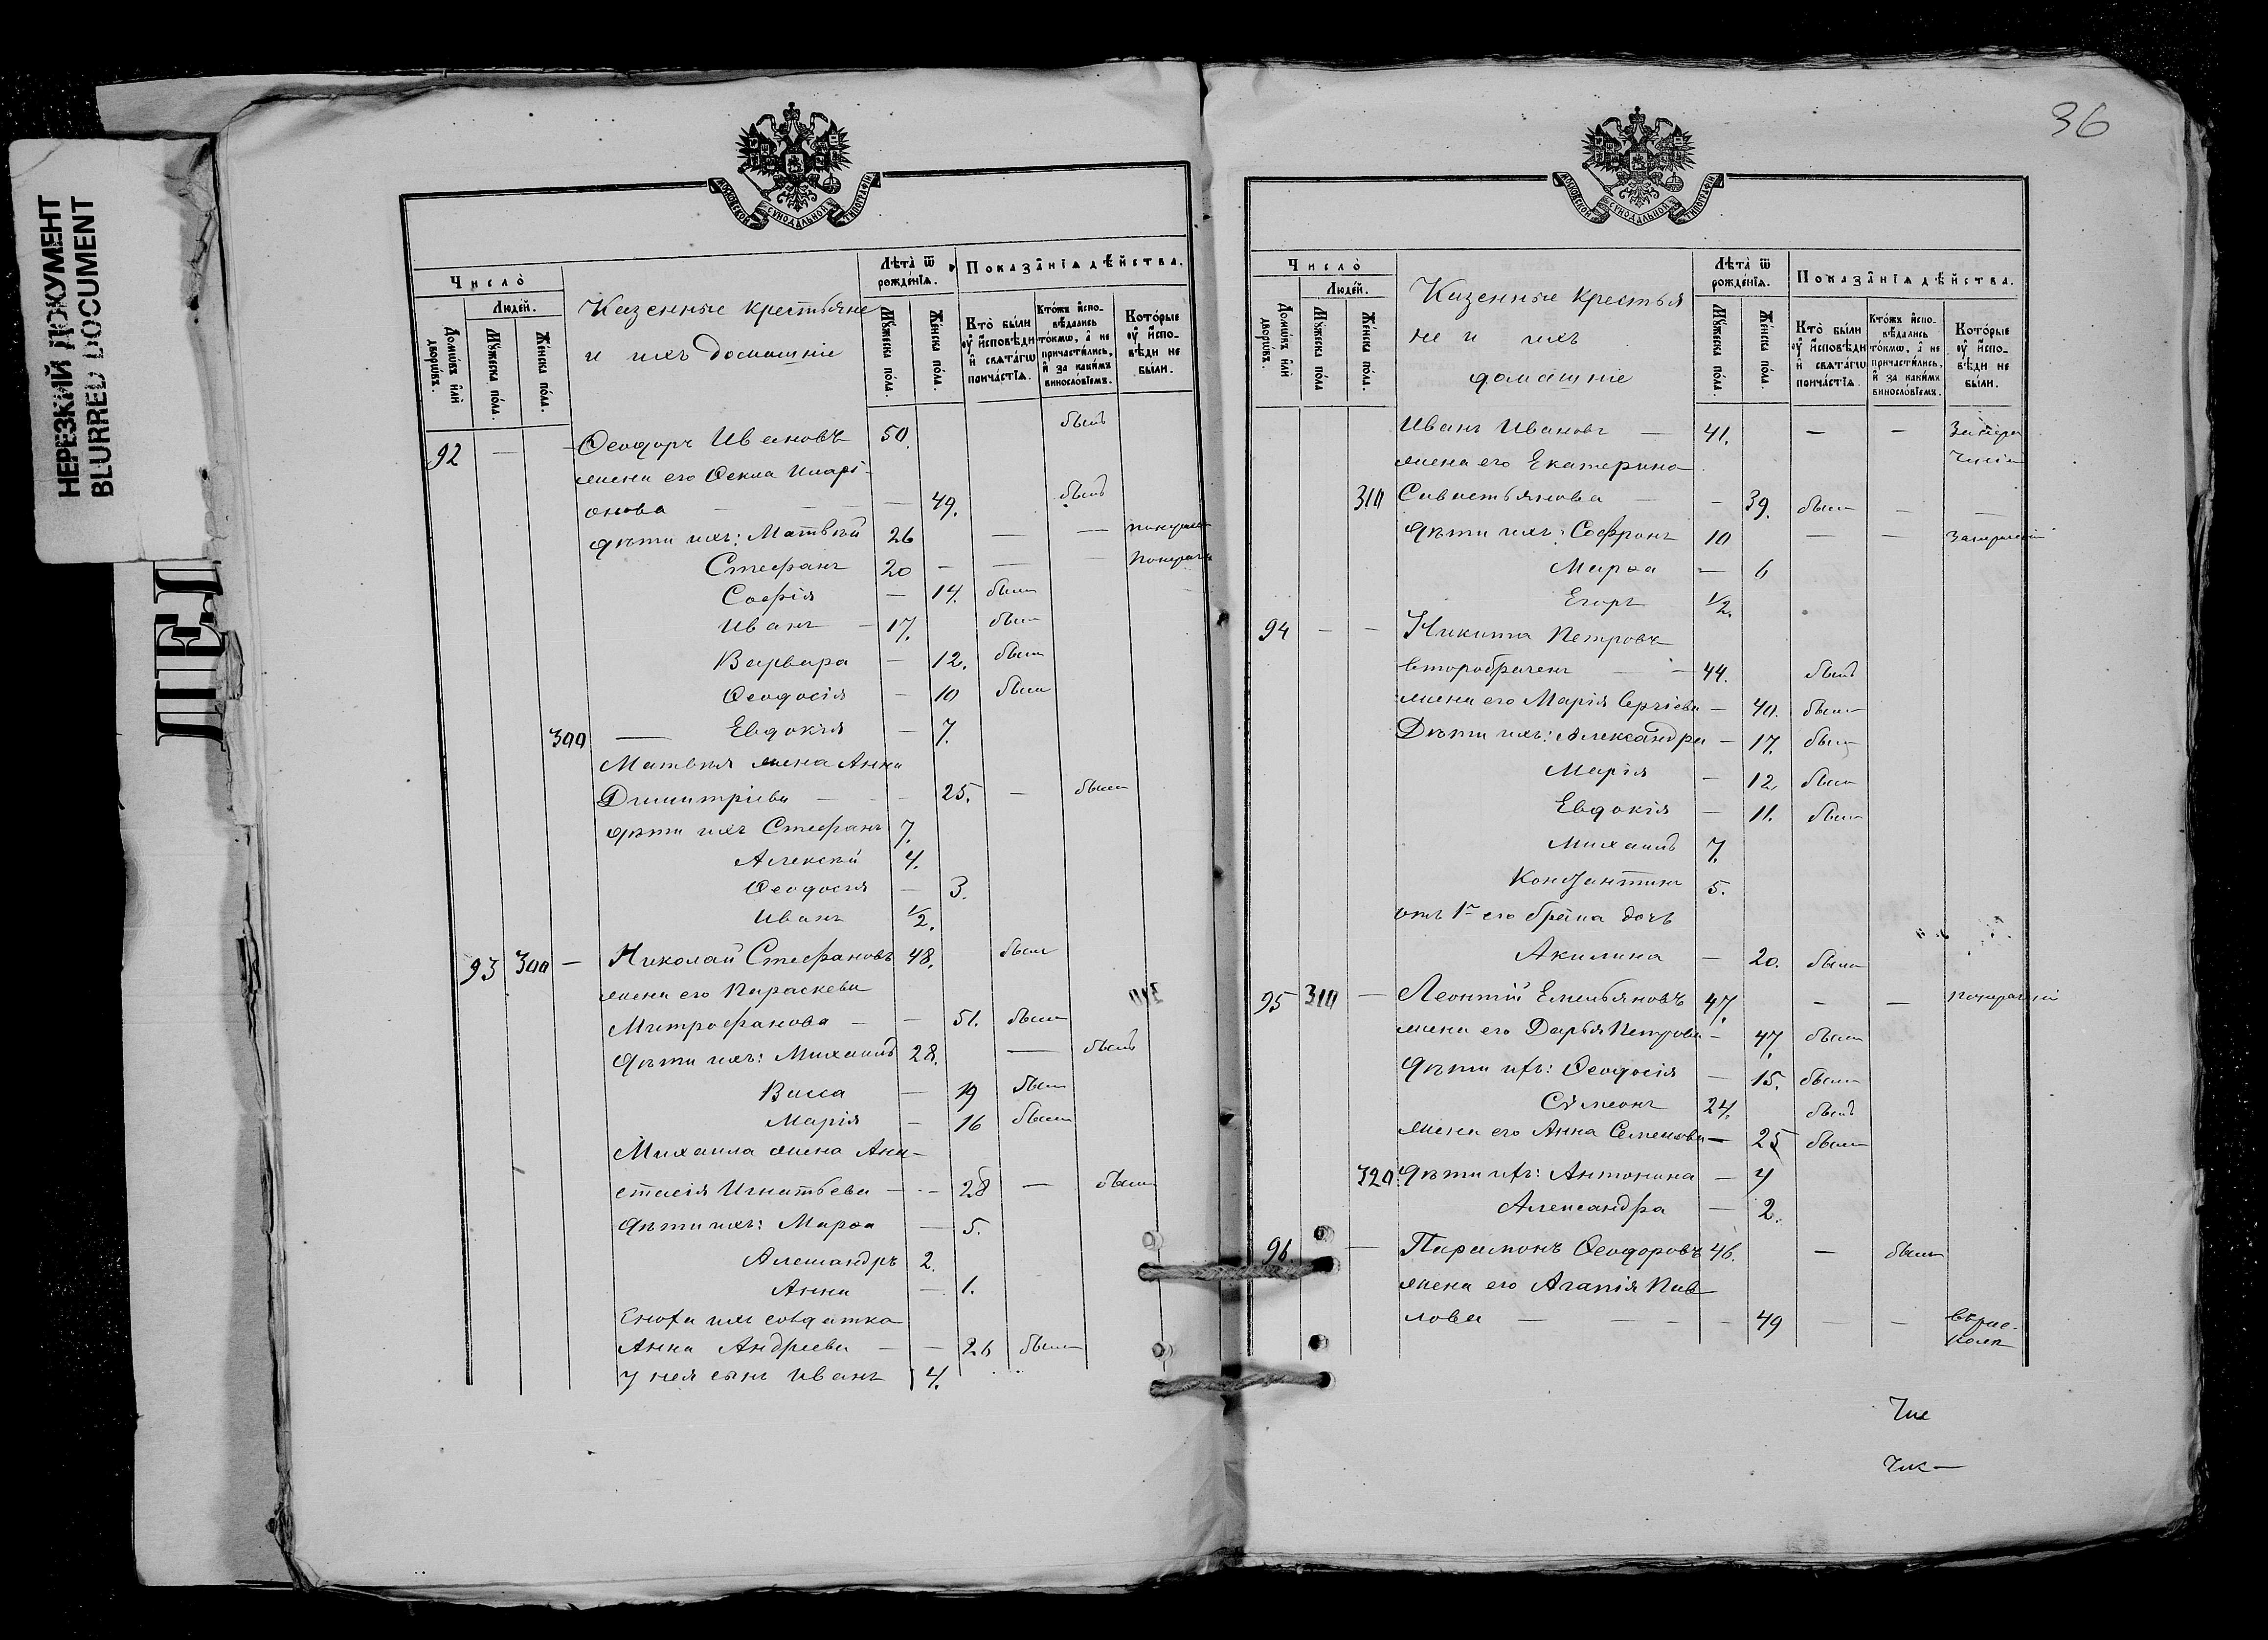 НЕРЕЗКИЙ ДОКУМЕНТ
BLURRED DOCUMENT
МОСКОВСКОЙ СѴНОДАЛЬНОЙ ТИПОГРАФІИ
Число̀
Людей.
Домѡвъ или дворѡвъ.
Мꙋжеска пола.
Женска пола.
Казенные крестьяне
и ихъ домашніе
Лѣта ѿ рожденїѧ.
Мꙋжеска пола.
Женска пола.
Показанїѧ дѣйства.
Кто были ꙋ исповѣди и свѧтагѡ причастїѧ.
Ктожъ исповѣдались токмѡ, а не причастились, и за какимъ винословїемъ.
Которые ꙋ исповѣди не были.
92 — — Ѳеодоръ Ивановъ 50. былъ
жена его Ѳекла Иларі-
онова — 49. была
дѣти ихъ: Матвѣй 26 — —
Стефанъ 20 — —
Софія — 14. была
Иванъ — 17. былъ
Варвара — 12. была
Ѳеодосія — 10 была
300 — Евдокія — 7.
Матвѣя жена Анна
Димитріева — — 25. — была
дѣти ихъ Стефанъ 7.
Алексѣй 4.
Ѳеодосія — 3.
Иванъ ½.
93 300 — Николай Стефановъ 48. былъ
жена его Параскева
Митрофанова — — 51. была
Дѣти ихъ: Михаилъ 28. — былъ
Васса — 19 была
Марія — 16 была
Михаила жена Ана-
стасія Игнатьева — — 28 — была
Дѣти ихъ: Марѳа — 5.
Александръ 2.
Анна — 1.
Сноха ихъ солдатка
Анна Андреева — — 26 была
у нея сынъ Иванъ 4.
36
МОСКОВСКОЙ СѴНОДАЛЬНОЙ ТИПОГРАФІИ
Число̀
Людей.
Домѡвъ или дворѡвъ.
Мꙋжеска пола
Женска пола.
Казенные крестья
не и ихъ
домашніе
Лѣта ѿ рожденїѧ.
Мꙋжеска пола.
Женска пола.
Показанїѧ дѣйства.
Кто были ꙋ исповѣди и свѧтагѡ причастїѧ.
Ктожъ исповѣдались токмѡ, а не причастились, и за какимъ винословїемъ.
Которые ꙋ исповѣди не были.
Иванъ Ивановъ — 41. — —
жена его Екатерина
310 Савостьянова — — 39. была — —
Дѣти ихъ: Софронъ 10 — —
Марѳа — 6
Егоръ ½.
94 — — Никита Петровъ
второбраченъ — — 44. былъ
жена его Марія Сергіева — 40. была
Дѣти ихъ: Александра — 17. была
Марія — 12. была
Евдокія — 11. была
Михаилъ 7.
Константинъ 5.
отъ 1го его брака дочь
Акилина — 20. была
95 310 — Леонтій Емельяновъ 47. — —
жена его Дарья Петрова — 47. была
Дѣти ихъ: Ѳеодосія — 15. была
Сѵмеонъ 24. былъ
жена его Анна Семенова — 25 была
320 Дѣти ихъ: Антонина — 4
Александра — 2.
96. — Парамонъ Ѳеодоровъ 46. — былъ
жена его Агапія Пав-
лова — — — — 49 — —